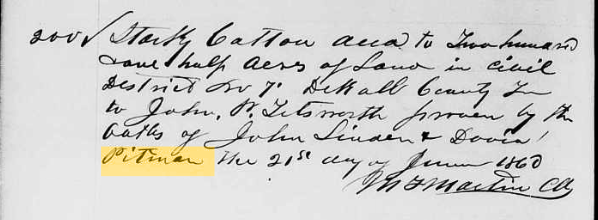 200 Starky Catton deed to Two hundred
& one half Acres of Land in Civil
District No 7. DeKalb County Tn
to John. P. Titsworth proven by the
Oaths of John Linder & David
Pitman the 21st day of June 1860
Martin Clk